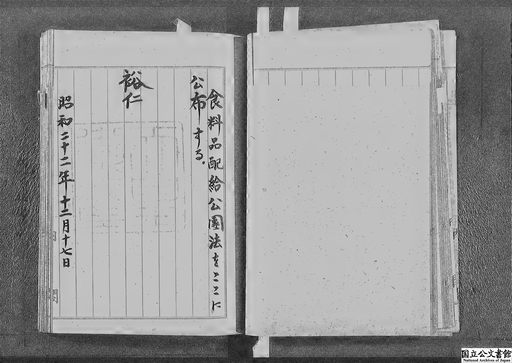 食料品配給公團法をここに
公布する。
裕仁
昭和二十二年十二月十七日
国立公文書館
National Archives of Japan